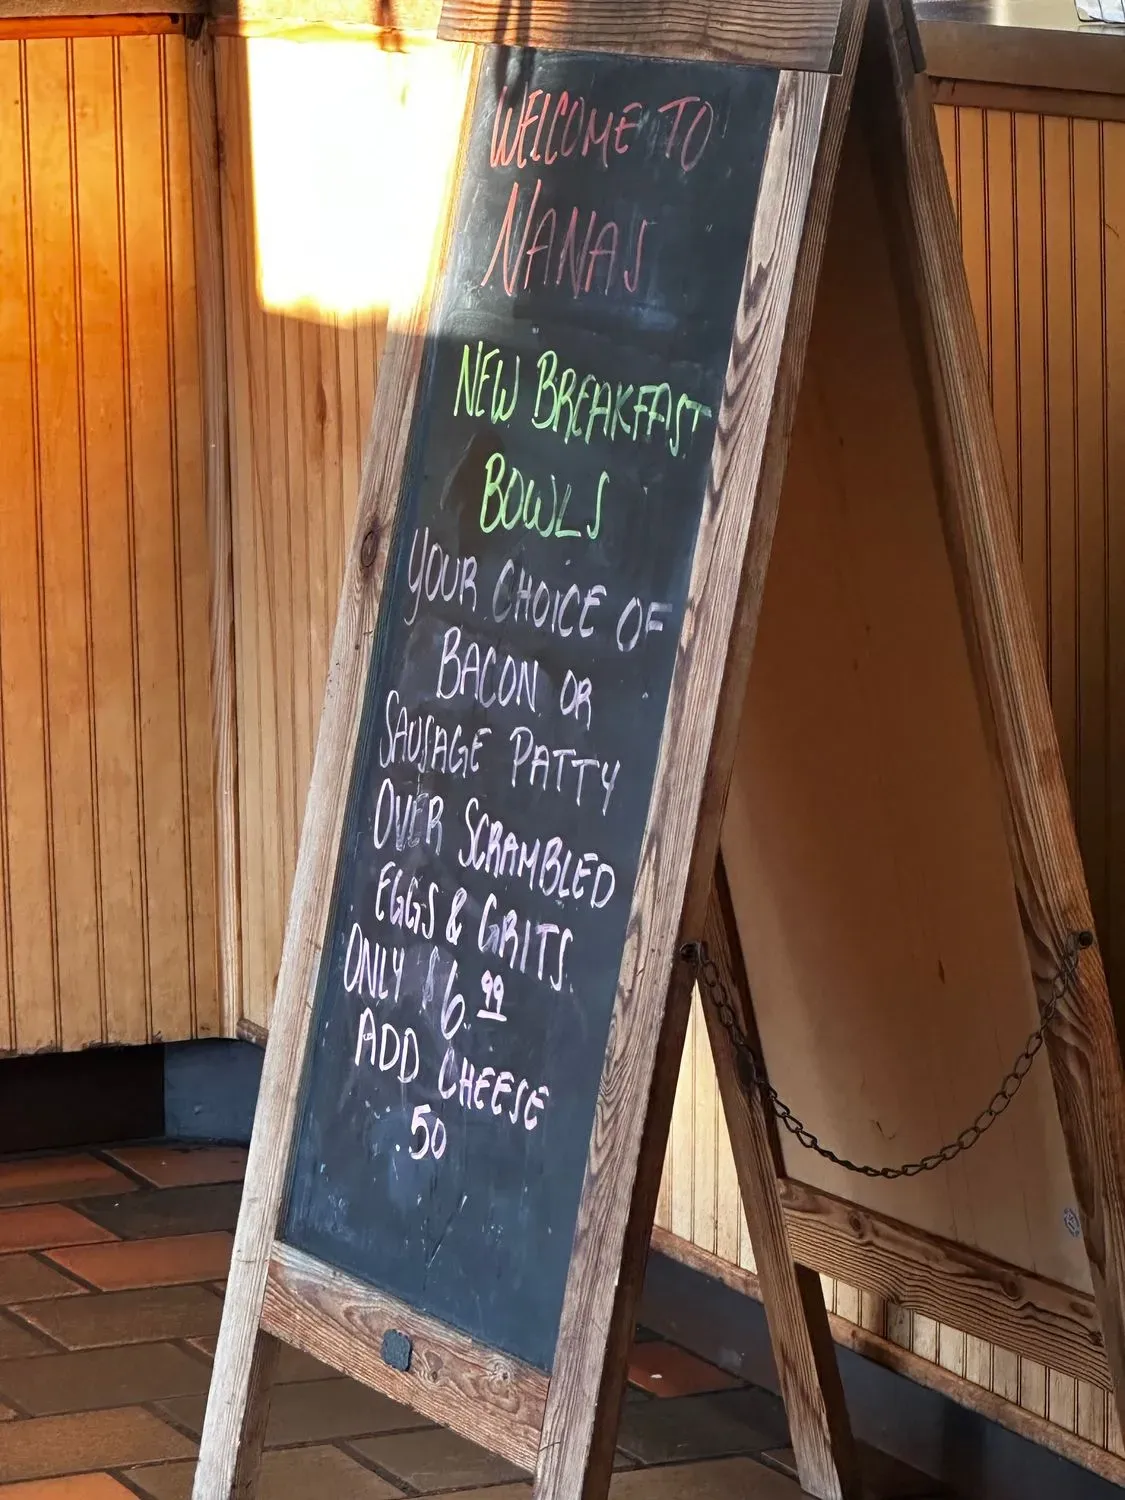 WELCOME TO
NANAS
NEW BREAKFAST
BOWLS
YOUR CHOICE OF
BACON OR
SAUSAGE PATTY
OVER SCRAMBLED
EGGS & GRITS.
ONLY $6.99
ADD CHEESE
.50